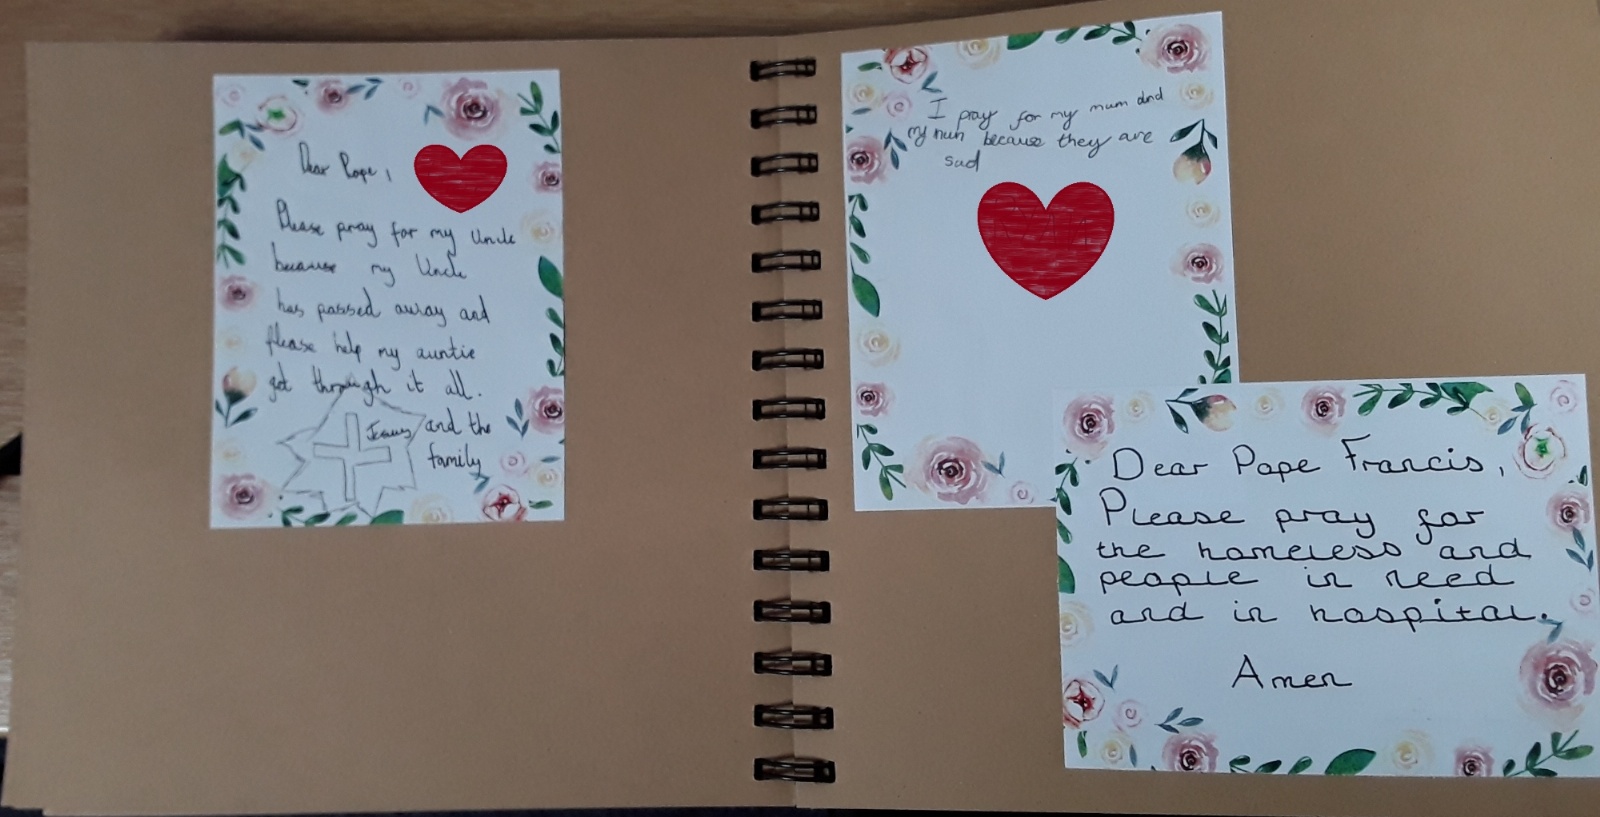 Dear Pope,
Please pray for my Uncle
because my Uncle
has passed away and
please help my auntie
get through it all.
Jesus and the
family
I pray for my mum and
my nun because they are
sad
Dear Pope Francis,
Please pray for
the homeless and
people in need
and in hospital.
Amen